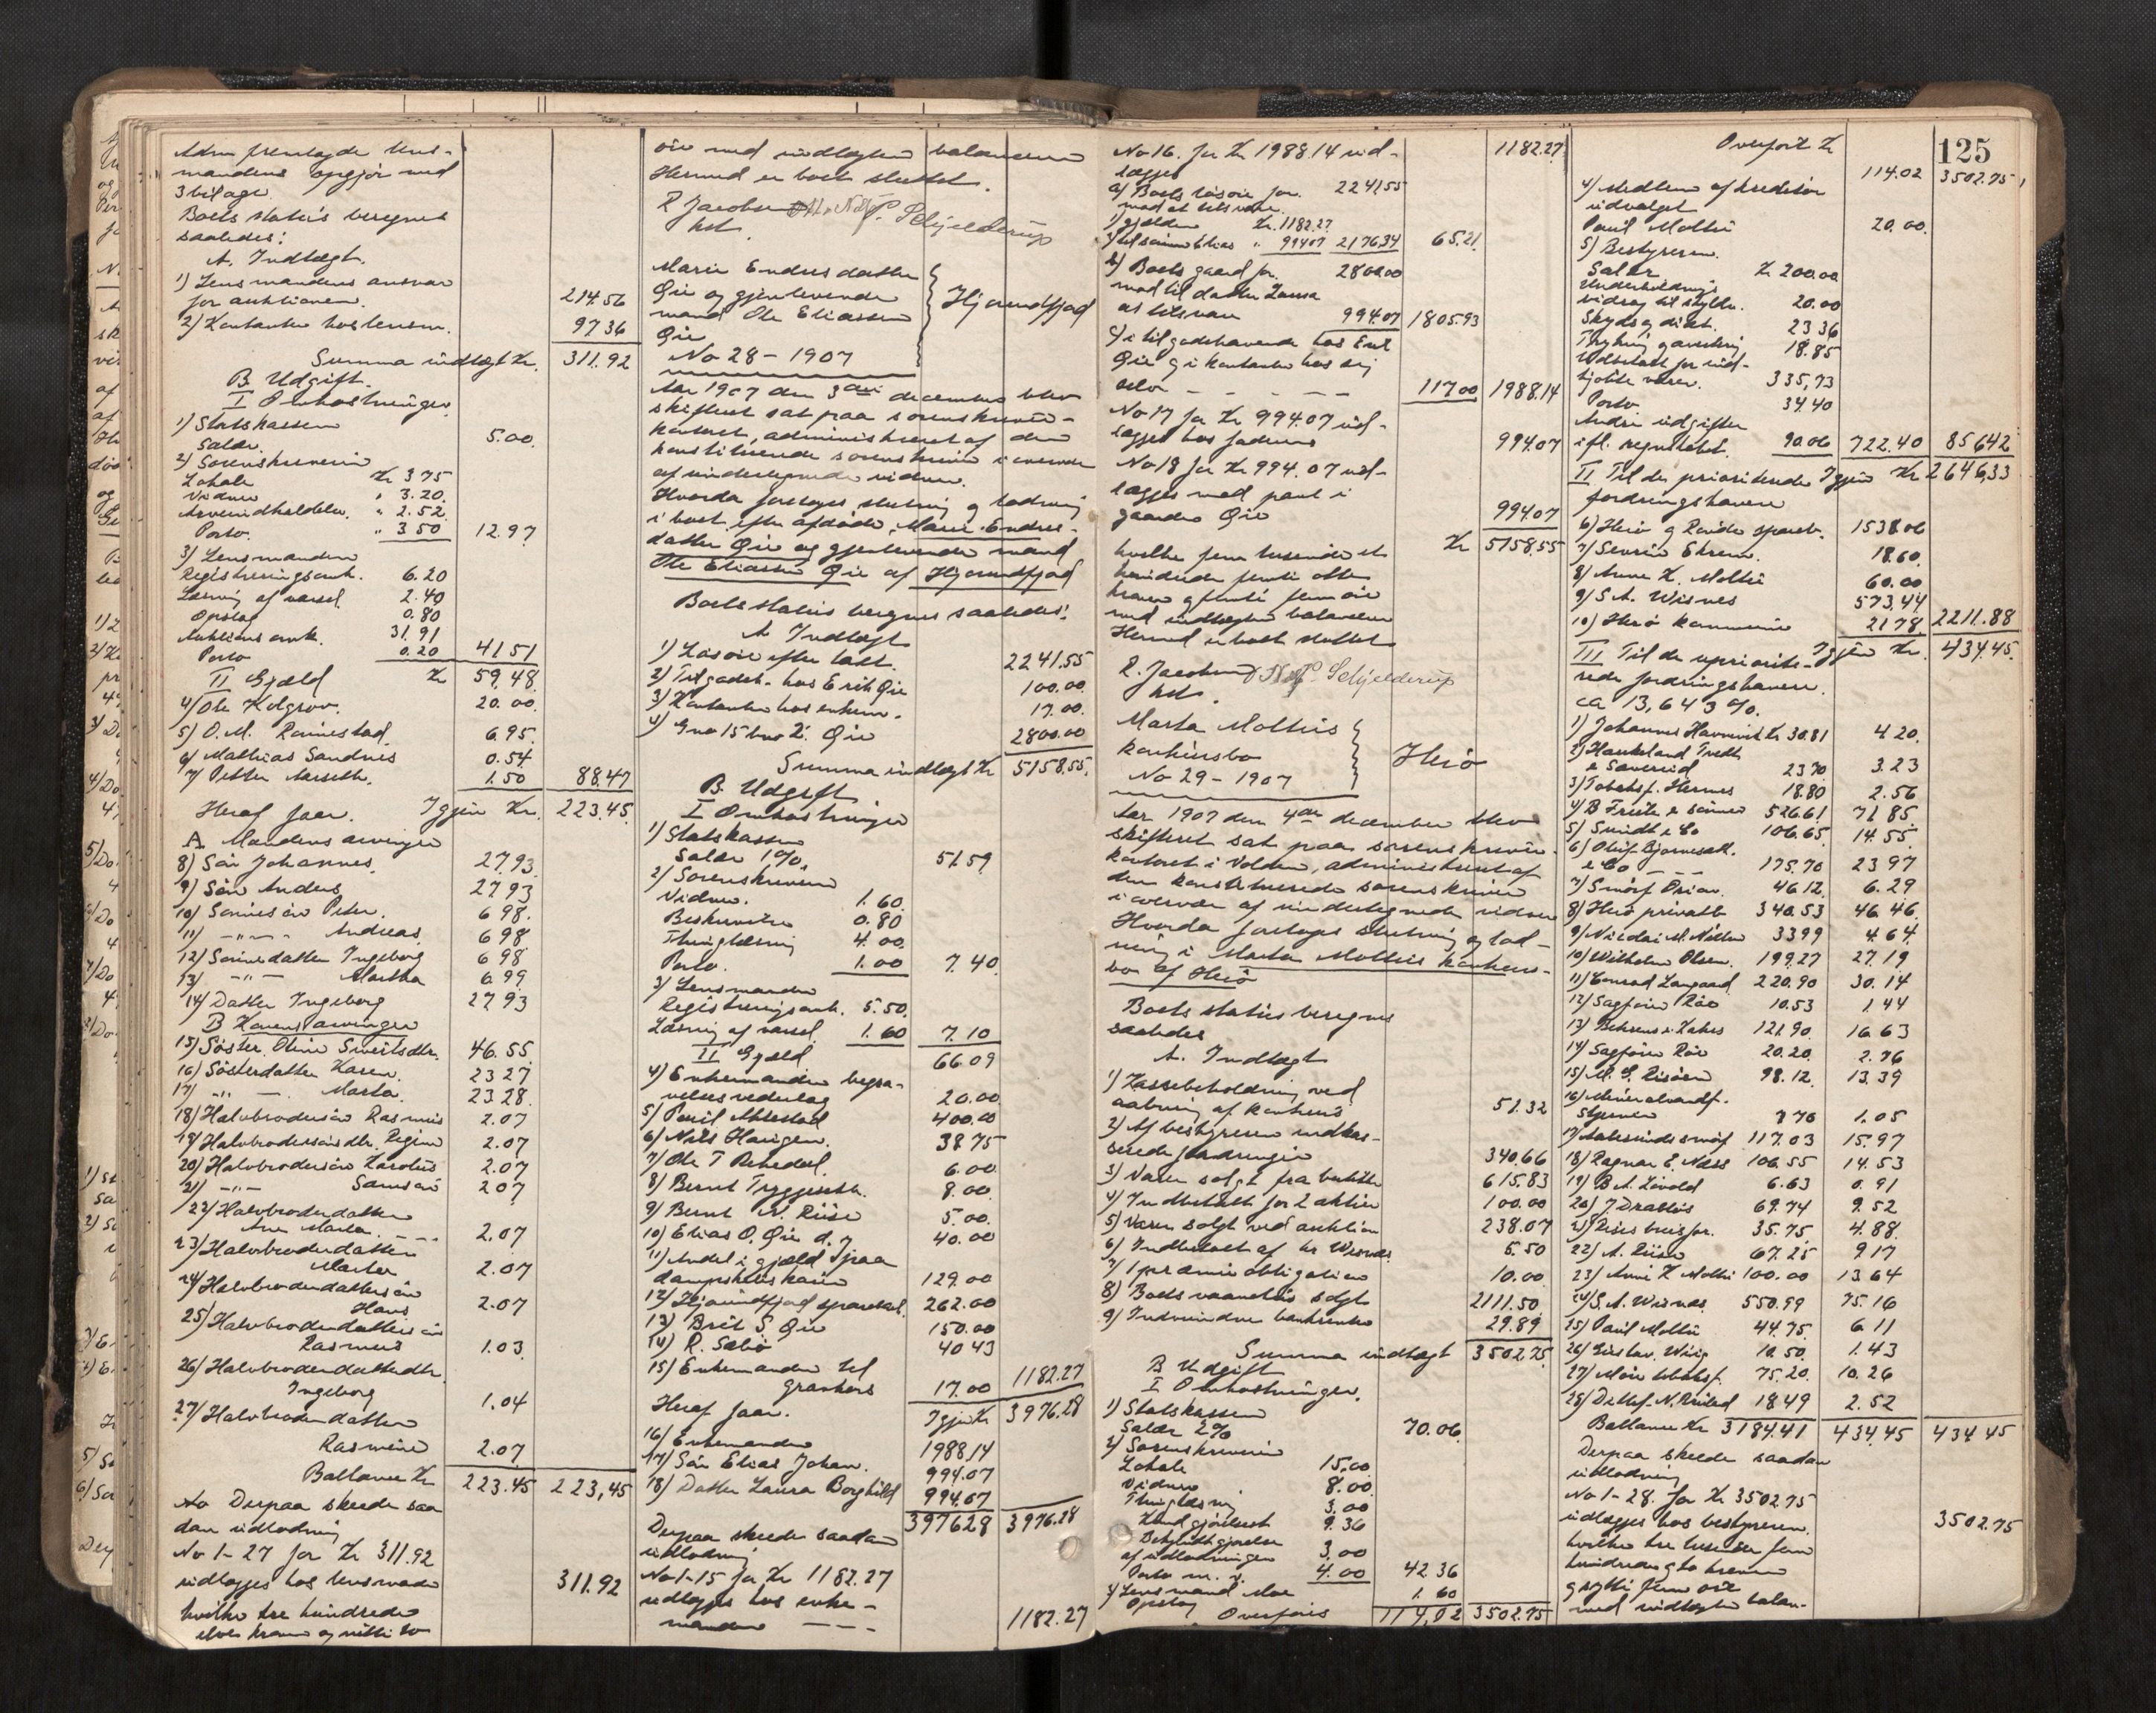 Adm fremlagde lens-
mandens opgjør med
3 bilage
Boets status beregnes
saaledes:
A. Indtægt.
1) Lensmandens ansvar
for auktionen. 214.56
2) Kontanter hos lensm. 97 36
Summa indtægt Kr. 311.92
B. Udgift.
I Omkostninger
1) Statskassen
Salær. 5.00.
2) Sorenskriveren
Lokale Kr 3 75
Vidner " 3.20.
Arvemeddelelse. " 2.52.
Porto. " 3 50 12.97
3) Lensmanden
Registreringsomk. 6.20
Læsning af varsel 2.40
Opslag 0.80
Auktions omk. 31.91
Porto 0.20 41 51
II Gjæld Kr 59.48.
4) Ole Kolgrov. 20.00.
5) O. M. Rainestad. 6 95.
6) Mathias Sandnes 0.54
7) Petter Aarseth. 1.50 88.47
Heraf faar. Igjen Kr. 223.45.
A. Mandens arvinger
8) Søn Johannes. 27.93.
9) Søn Anders 27 93
10) Sønnesøn Peter. 6 98.
11) -"-"- Andreas. 6 98
12) Sønnedatter Ingeborg 6 98
13) -"-"- Martha 6.99
14) Datter Ingeborg 27 93
B Konens arvinger
15) Søster Oline Sivertsdtr. 46.55.
16) Søsterdatter Karen. 23 27
17) -"- - Marta. 23 28.
18) Halvbrodersøn Rasmus 2.07
19) Halvbrodersøns dtr. Regine 2.07
20) Halvbrodersøn Karolus 2.07
21) -"- Samson 2 07
22) Halvbroderdatter
Ane Marta. - - - 2.07
23) Halvbroderdatter
Marta 2.07
24) Halvbroderdattersøn
Hans 2.07
25) Halvbroderdattersøn
Rasmus 1.03.
26) Halvbroderdatterdtr.
Ingeborg 1.04
27) Halvbroderdatter
Rasmine 2.07
Ballance Kr 223.45 223,45
Derpaa skeede saa
dan udlodning
No 1-27 for Kr 311.92
udlægges hos lensmanden 311.92
hvilke tre hundrede
elve kroner og nitti to
øre med indtægten balancerer
Hermed er boet sluttet.
R Jacobsen P. Schjelderup
kst.
Marie Endresdatter
Øie og gjenlevende
mand Ole Eliassen
Øie
No 28 - 1907
Hjørundfjord
Aar 1907 den 3die december blev
skifteret sat paa sorenskriver-
kontoret, administreret af den
konstituerede sorenskriver i overvær
af undertegnede vidner.
Hvorda foretoges slutning og lodning
i boet efter afdøde Marie Endres-
datter Øie og gjenlevende mand
Ole Eliassen Øie af Hjørundfjord
Boets status beregnes saaledes:
A Indtægt
1) Løsøre efter takst. 2241.55
2) Tilgodeh. hos Erik Øie 100.00.
3) Kontanter hos enkem. 17.00.
4) Gno 15 bno 2. Øie 2800.00
Summa indtægt Kr 5158.55.
B. Udgift
I Omkostninger
1) Statskassen
Salær 1%. 51 59
2) Sorenskriveren
Vidner. 1.60.
Beskrivelse 0.80
Thinglæsning 4.00.
Porto. 1.00 7.40.
3) Lensmanden
Registreringsomk. 5.50.
Læsning af varsel 1.60 7.10
II Gjæld 66 09
4) Enkemanden begra-
velsesvederlag 20.00
5) Poul Aklestad 400.00
6) Nils Haugen. 38 75
7) Ole T Rebedal. 6.00
8) Bernt Tryggestad. 8.00.
9) Bernt N. Riise 5.00.
10) Elias O. Øie d. y 40.00
11) Andel i gjæld paa
dampskibskaien 129.00
12) Hjørundfjord sparebank 262.00
13) Brit S. Øie 150.00
14) R. Sæbø 40 43
15) Enkemanden til
gravkors 17.00 1182.27
Heraf faar. Igjen Kr 3976.28
16) Enkemanden 1988,14
17) Søn Elias Johan. 994.07
18) Datter Laura Borghild 994.07
3976 28 3976.28
Derpaa skeede saadan
udlodning
No 1-15 for Kr 1182.27
udlægges hos enke-
manden - - - 1182.27
No 16. for Kr 1988.14 ud- 1182.27
lægges
a) Boets løsøre for. 2241,55
mod at tilsvare.
1) gjælden Kr. 1182.27
2) til sønnen Elias " 994.07 2176.34 65.21.
b) Boets gaard for. 2800.00
mod til datter Laura
at tilsvare 994.07 1805.93
c) i tilgodehavende hos Erik
Øie og i kontanter hos sig
selv - - - - - 117 00 1988.14
No 17 for Kr 994.07 ud-
lægges hos faderen 994.07
No 18 for Kr 994.07 ud-
lægges med pant i
gaarden Øie 994.07
hvilke fem tusinde et Kr 5158.55
hundrede femti otte
kroner og femti fem øre
med indtægten balancerer
Hermed er boet sluttet
R. Jacobsen P. Schjelderup
kst.
Marta Moltus
konkursbo
No 29 - 1907
Herø
Aar 1907 den 4de december blev
skifteret sat paa sorenskriver-
kontoret i Volden, administreret af
den konstituerede sorenskriver
i overvær af undertegnede vidner
Hvorda foretoges slutning og lod-
ning i Marta Moltus konkurs-
bo af Herø
Boets status beregnes
saaledes
A. Indtægt
1) Kassebeholdning ved
aabning af konkurs 51.32
2) Af bestyreren indkas-
serede fordringer 340.66
3) Varer solgt fra butikken 615.83
4) Indbetalt for 2 aktier 100.00
5) Varer solgt ved auktion 238.07
6) Indbetalt af hr Wisnes 5.50
7) 1 præmieobligation 10.00.
8) Boets vaanehus solgt 2111.50.
9) Indvundne bankrenter 29.89
Summa indtægt 3502.75.
B Udgift
I Omkostninger.
1) Statskassen
Salær 2% 70.06.
2) Sorenskriveren
Lokale 15,00
Vidner 8.00.
Thinglæsning 3.00
Kundgjørelser 9.36
Bekjendtgjørelse
af udlodningen 3.00
Porto m. v. 4.00 42 36
3) Lensmand Moe
Opslag 1.60
Overføres 114,02 3502.75
Overført Kr 125
114.02 3502.75
4) Medlem af kreditor
udvalget
Poul Moltu 20.00.
5) Bestyreren.
Salær Kr 200.00
Underholdnings
bidrag til skyldn. 20.00
Skyds og diæt. 23 36
Trykning avertering 18.85
Udbetalt for ind-
kjøbte varer. 335,73
Porto 34.40
Andre udgifter
ifl. regnskabet. 90.06 722.40 856 42
II Til de prioriterede Igjen Kr 2646,33
fordringshavere
6) Herø og Rovde spareb. 1538.06
7) Severin Ekrem. 18.60.
8) Anne K. Moltu 60.00
9) S. A. Wisnes 573,44
10) Herø kommune 21 78. 2211.88
III Til de upriorite- Igjen Kr. 434.45.
rede fordringshavere.
ca 13,643 %.
1) Johannes Havnevik Kr 30.81 4 20.
2) Haukeland Tvedt
& Søvereid 23 70 3.23
3) Tobaksf. Hermes 18.80 2.56
4) B Friele & sønner 526.61 71 85.
5) Sundt & Co 106.65. 14.55.
6) Oluf Bjørneseth.
& Co - - - 175.70 23 97
7) Smørf Orion. 46 12. 6.29
8) Herø privatb 340.53 46 46.
9) Nicolai M. Nilsen 33 99 4.64.
10) Wilhelm Olsen. 199.27 27.19
11) Conrad Langaard 220.90 30.14
12) Sagfører Roo 10.53 1.44
13) Behrens & Kahrs 121.90. 16 63
14) Sagfører Roo 20.20. 2.76
15) M. S. Risøen 98.12. 13.39
16) Mineralvandf.
Stjernen 7 70 1.05
17) Aalesunds smørf 117.03 15.97
18) Ragnar E. Næss 106.55 14.53
19) B. A. Løvold 6.63 0.91
20) J Drabløs 69.74 9.52
21) 35.75. 4.88.
22) A. Riise 67.25 9.17
23) Anne K Moltu 100.00 13 64
24) S. A. Wisnes 550.99 75.16
25) Poul Moltu 44.75. 6 11
26) Gustav. Wiig 10.50. 1.43
27) Møre tobaksf. 75.20. 10.26
28) Detlef. N. 18.49 2.52
Ballance Kr 3184.41 434.45 434 45
Derpaa skeede saadan
udlodning
No 1-28. for Kr 3502.75
udlægges hos bestyreren. 3502.75
hvilke tre tusinde fem
hundrede og to kroner
og sytti fem øre
med indtægten balan-